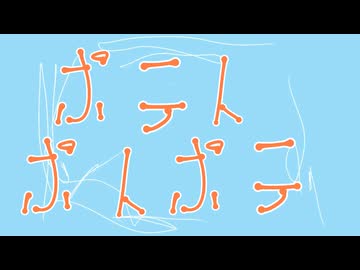 ポテト
ポトポテ